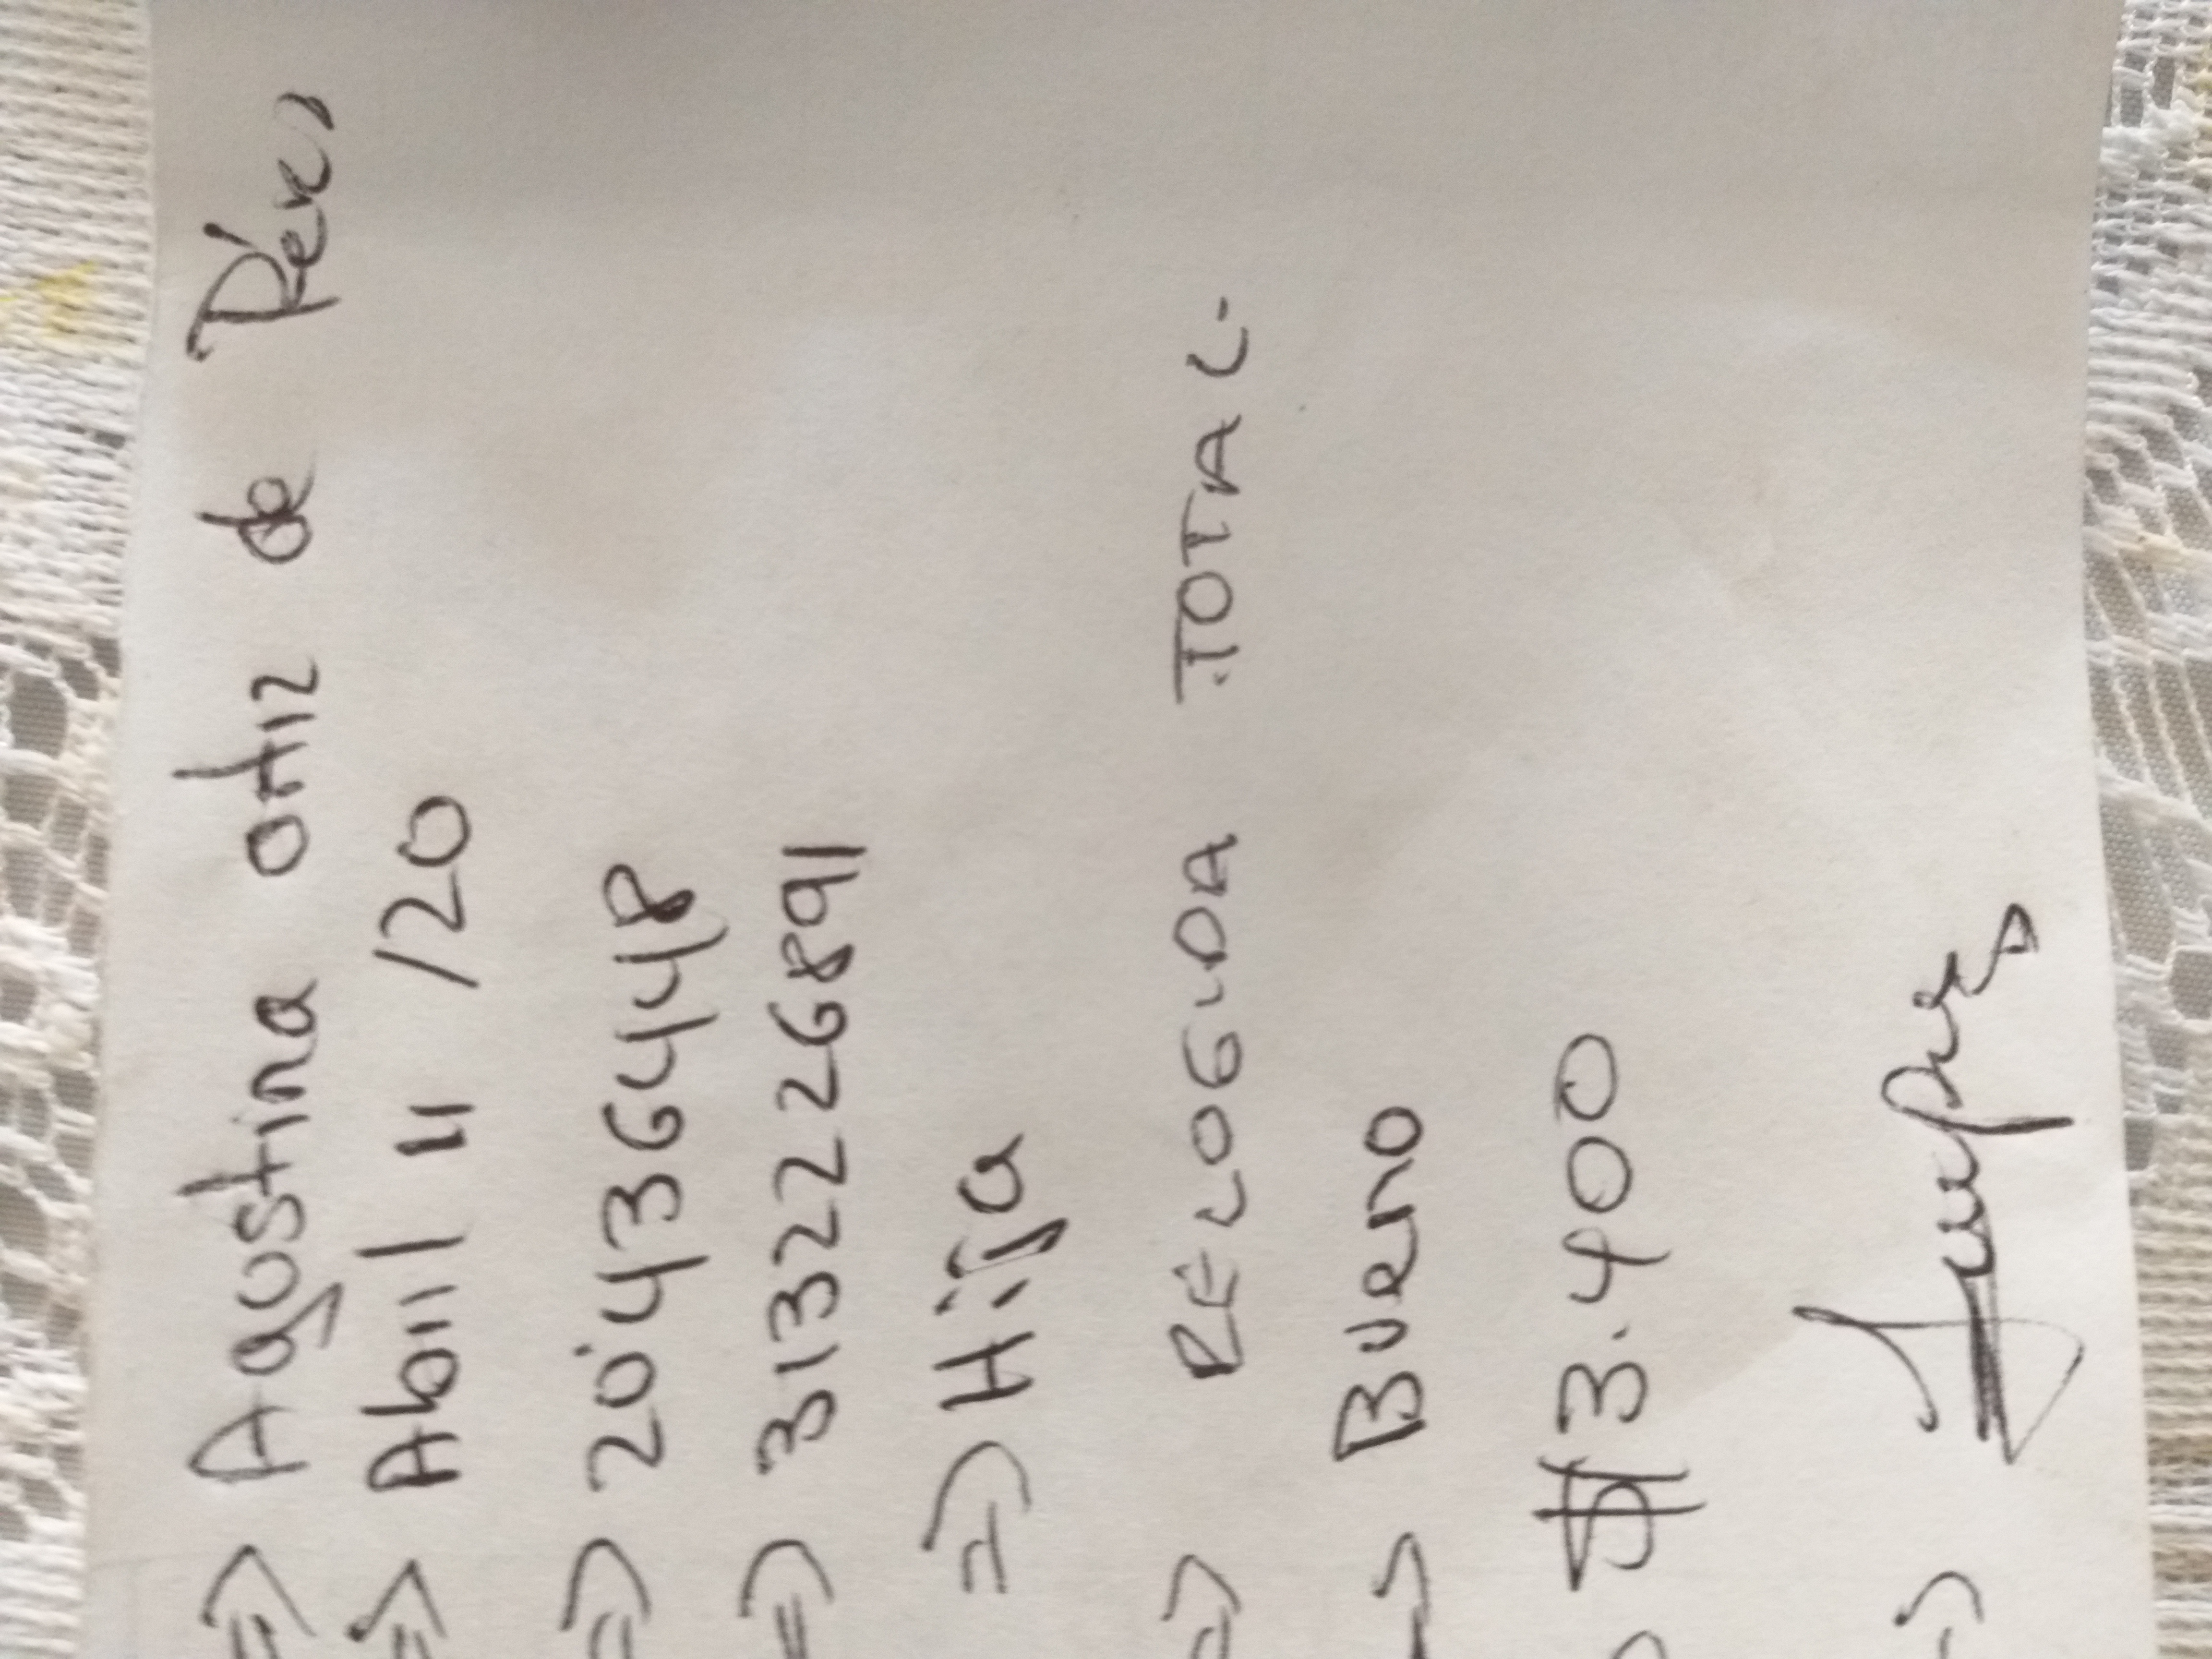 => Agustina ortiz de Pérez
=> Abril 11 /20
=> 20'4364448
=> 3132226891
=> Hija
=> RECOGIDA TOTAL.
-> Bueno
$13.400
->